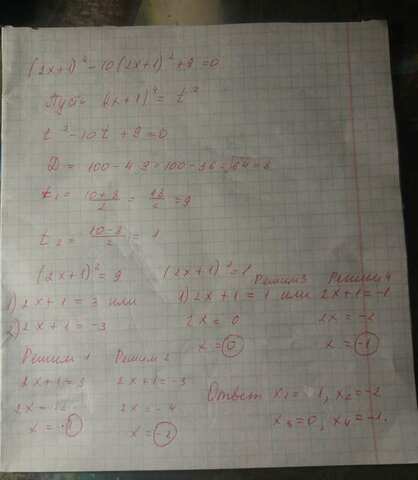 (2x+1)⁴-10(2x+1)²+9=0
Пусть (2x+1)⁴=t²
t²-10t+9=0
D=100-4·9=100-36=√64=8
t₁=(10+8)/2=18/2=9
t₂=(10-8)/2=1
(2x+1)²=9 (2x+1)²=1
Решим 3 Решим 4
1) 2x+1=3 или 1) 2x+1=1 или 2x+1=-1
2) 2x+1=-3 2x=0 2x=-2
x=0 x=-1
Решим 1 Решим 2
2x+1=3 2x+1=-3
2x= 2x=-4
x= x=-2
Ответ x₁= 1, x₂=-2
x₃=0, x₄=-1.